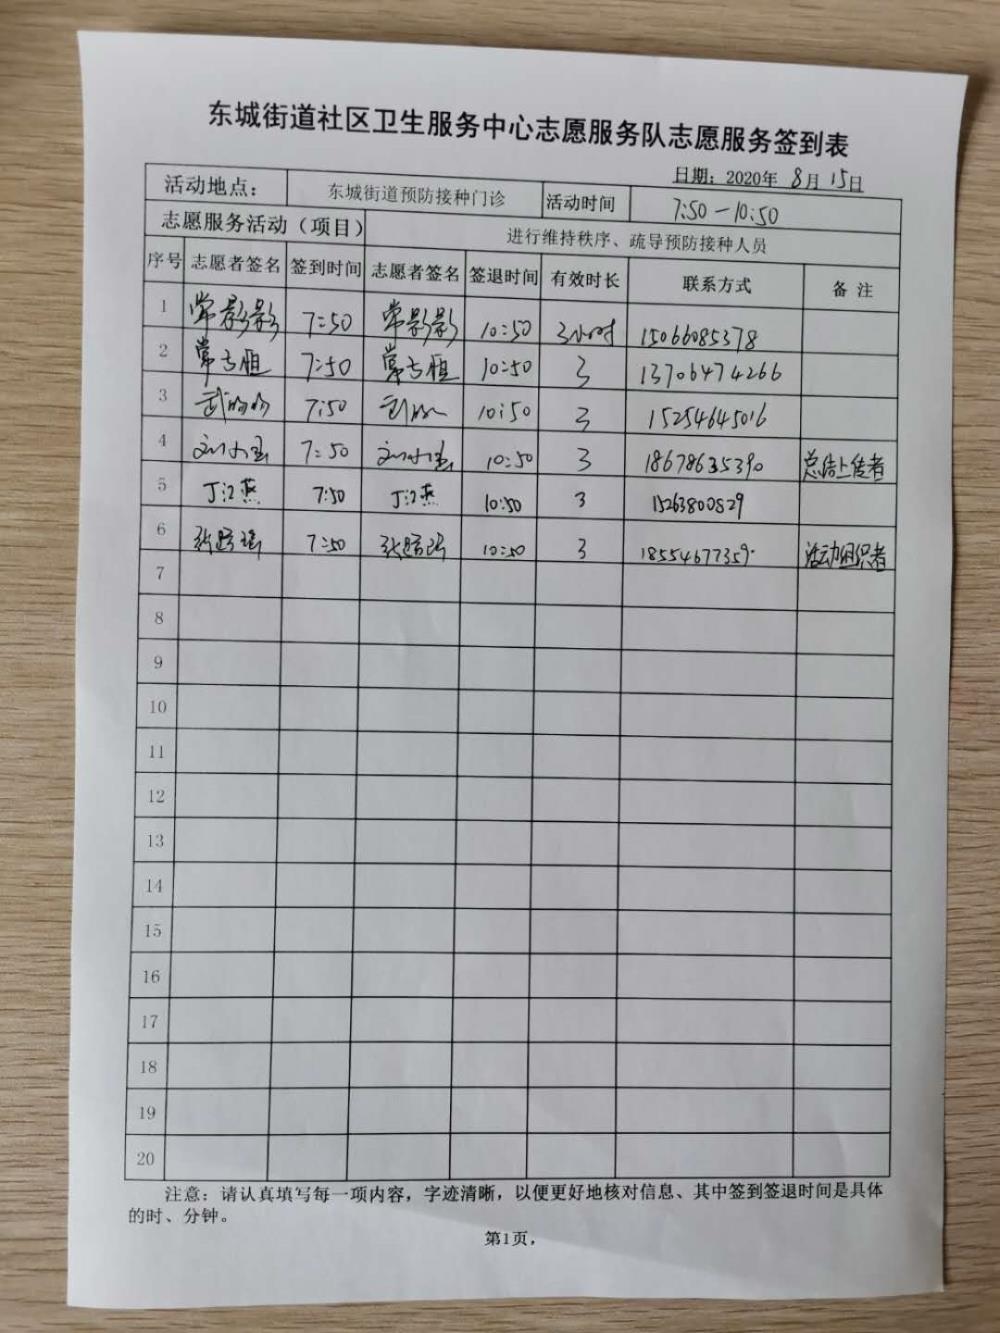 东城街道社区卫生服务中心志愿服务队志愿服务签到表
日期：2020年 8月 15日
活动地点： 东城街道预防接种门诊 活动时间 7:50-10:50
志愿服务活动（项目） 进行维持秩序、疏导预防接种人员
序号 志愿者签名 签到时间 志愿者签名 签退时间 有效时长 联系方式 备 注
1 常影影 7:50 常影影 10:50 3小时 15066085378
2 7:50 10:50 3 13706474266
3 7:50 10:50 3 15254645016
4 7:50 10:50 3 18678635390 总结上传者
5 丁江燕 7:50 丁江燕 10:50 3 15263800829
6 7:50 10:50 3 18554677359 活动组织者
7
8
9
10
11
12
13
14
15
16
17
18
19
20
注意：请认真填写每一项内容，字迹清晰，以便更好地核对信息、其中签到签退时间是具体
的时、分钟。
第1页，